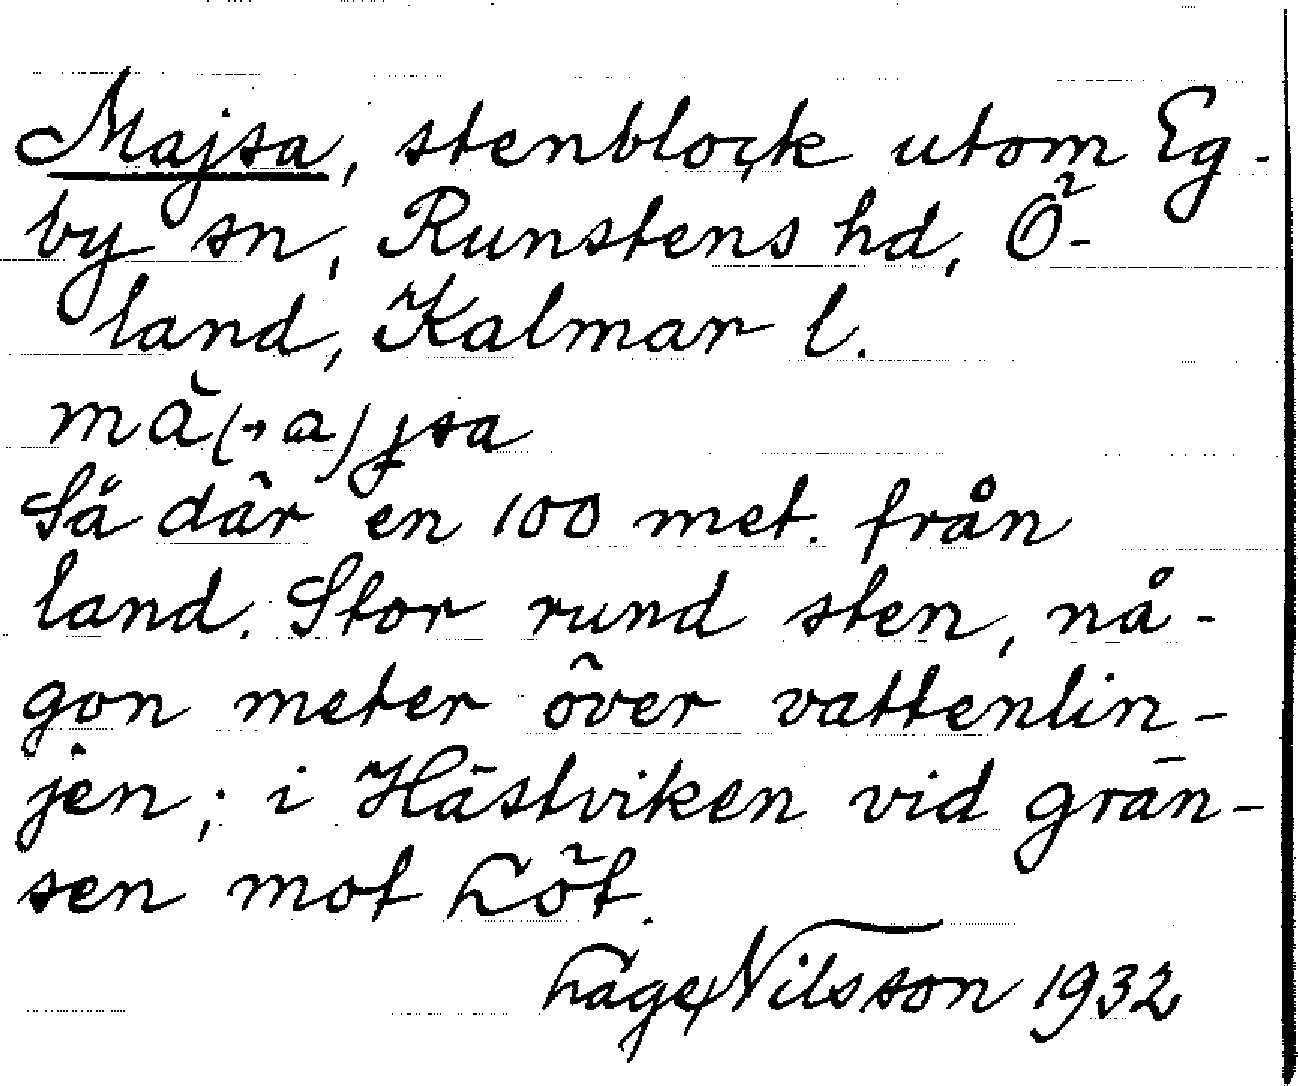 Majsa, stenblock utom Eg-
by sn, Runstens hd, Ö-
land, Kalmar l.
mà(→a)jsa
Så där en 100 met. från
land. Stor rund sten, nå-
gon meter över vattenlin-
jen; i Hästviken vid grän-
sen mot Löt.
Nilsson 1932